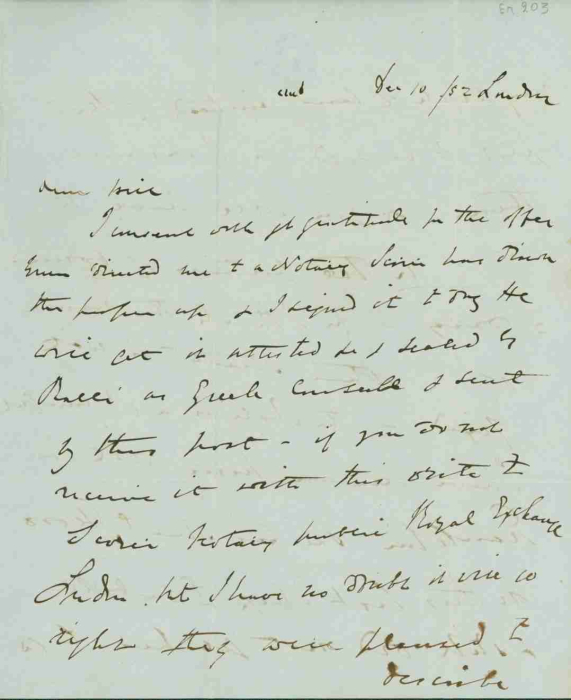 En 203
club Dec 10 /52 London
dear Will
I consent with gt gratitude for the offer
directed me to a Notary has drawn
the paper up & I signed it to day He
will get it attested & sealed by
Ralli as Greek Consul & sent
by this post - if you do not
receive it with this write to
Notary public Royal Exchange
London but I have no doubt it will go
right they were pleased to
describe